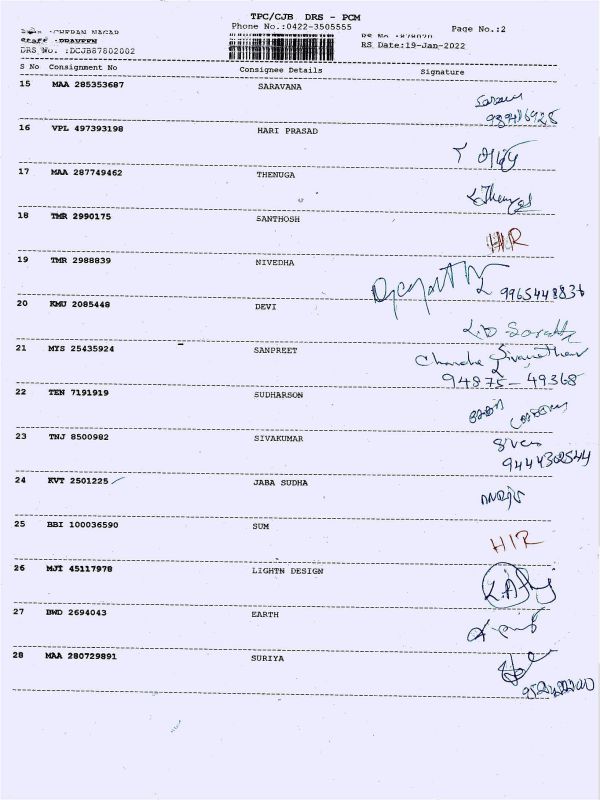 TPC/CJB DRS - PCM
Phone No.:0422-3505555
Page No.:2
CHERAN NAGAR
Staff :PRAVEEN
RS No :878020
DRS No. :DCJB87802002
RS Date:19-Jan-2022
S No Consignment No Consignee Details Signature
15 MAA 285353687 SARAVANA
16 VPL 497393198 HARI PRASAD
17 MAA 287749462 THENUGA
18 TMR 2990175 SANTHOSH
19 TMR 2988839 NIVEDHA
9965448836
20 KMU 2085448 DEVI
21 MYS 25435924 SANPREET
94875-49368
22 TEN 7191919 SUDHARSON
23 TNJ 8500982 SIVAKUMAR
Siva
9444302544
24 KVT 2501225 JABA SUDHA
25 BBI 100036590 SUM
26 MJI 45117978 LIGHTN DESIGN
27 BWD 2694043 EARTH
28 MAA 280729891 SURIYA